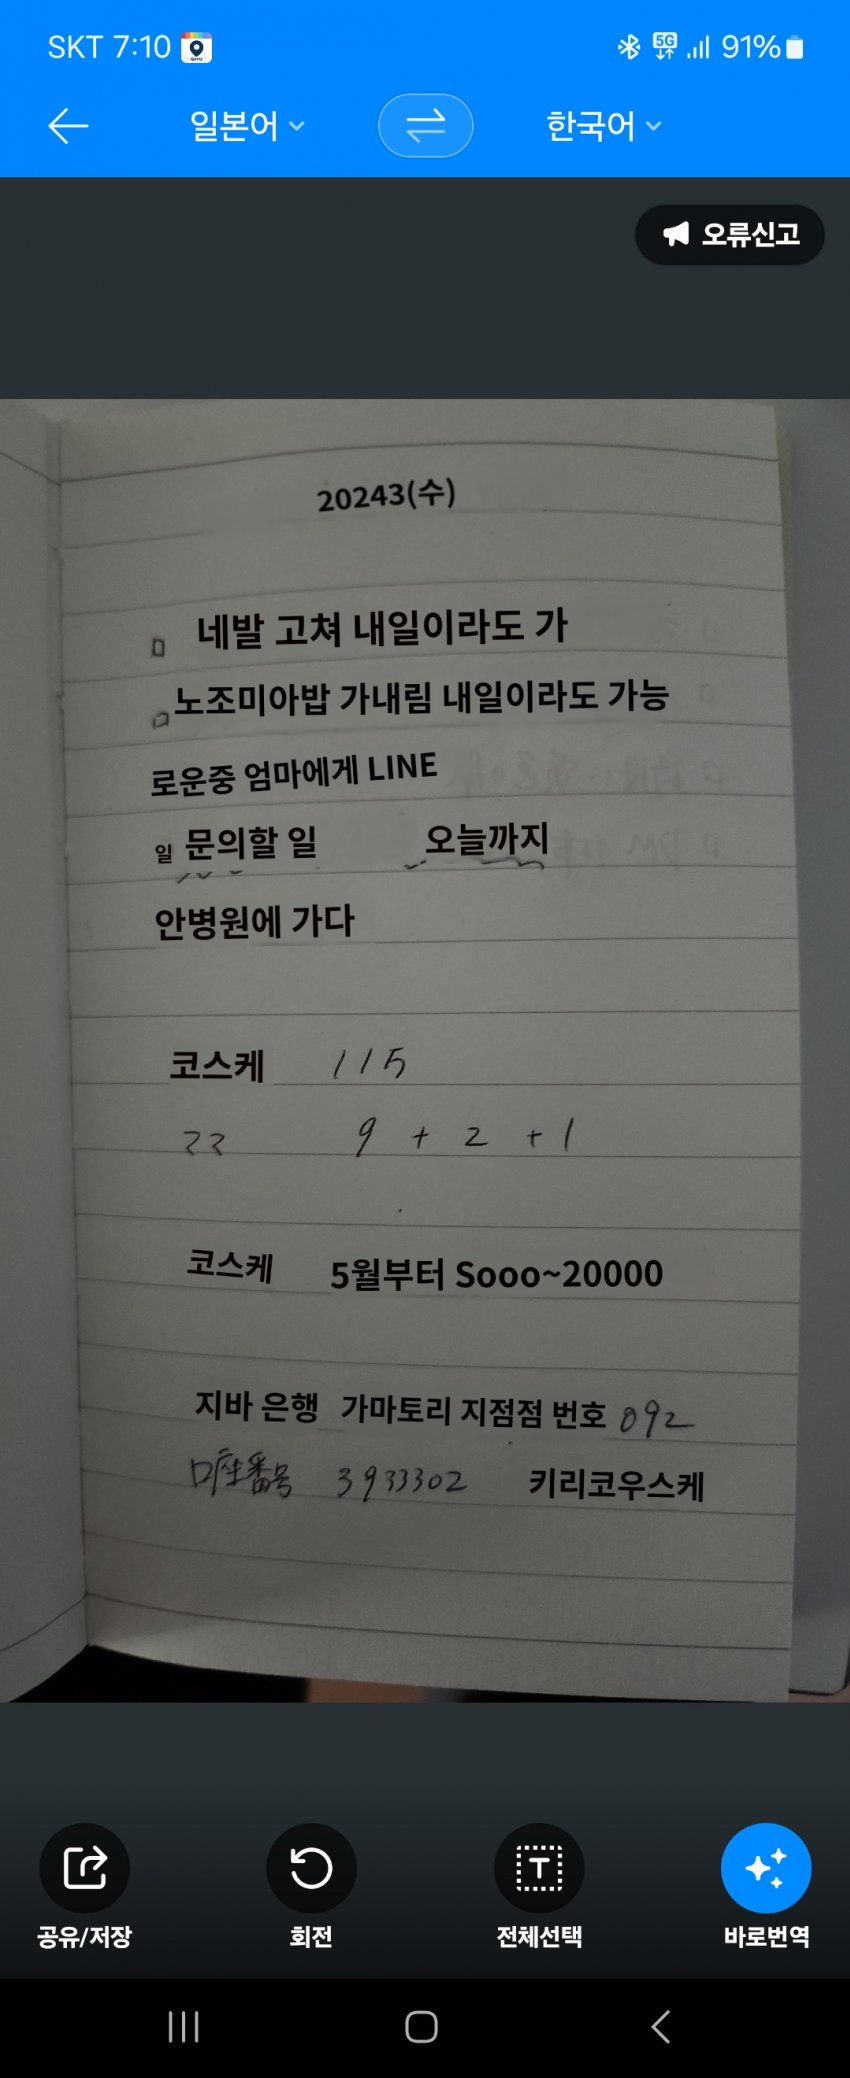 SKT 7:10 91%
일본어 한국어
오류신고
20243(수)
네발 고쳐 내일이라도 가
노조미아밥 가내림 내일이라도 가능
로운중 엄마에게 LINE
일 문의할 일 오늘까지
안병원에 가다
코스케 115
ココ 9 + 2 + 1
코스케 5월부터 Sooo~20000
지바 은행 가마토리 지점점 번호 092
口座番号 3933302 키리코우스케
공유/저장 회전 전체선택 바로번역